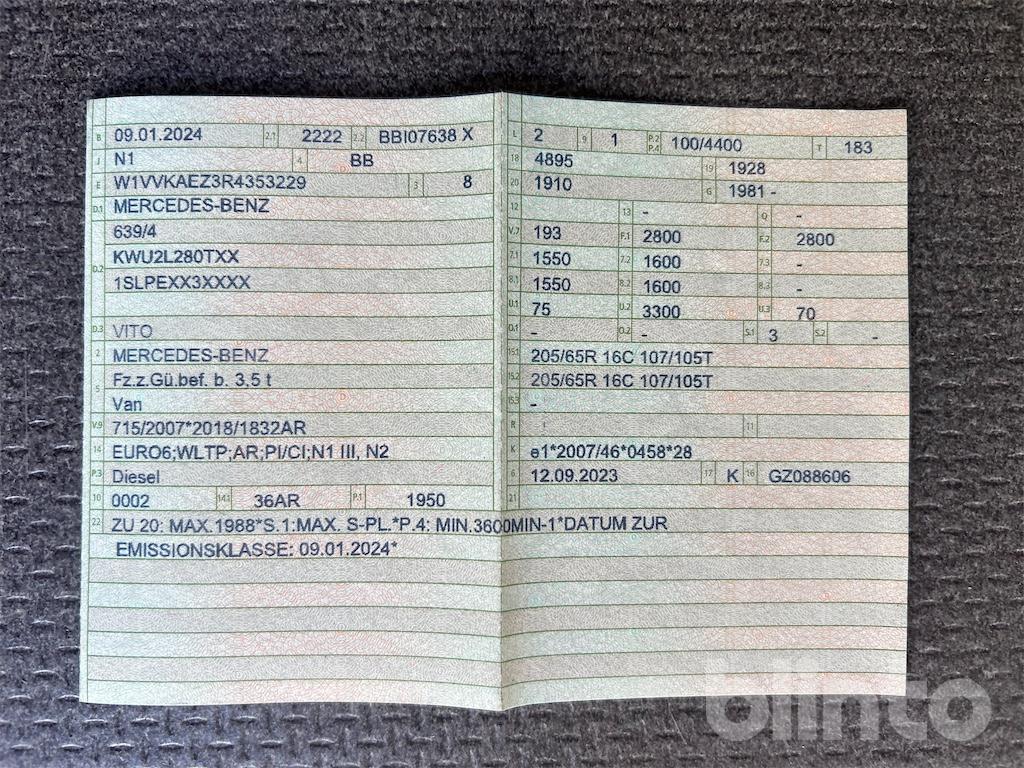 B 09.01.2024 2.1 2222 2.2 BBI07638 X
J N1 4 BB
E W1VVKAEZ3R4353229 3 8
D.1 MERCEDES-BENZ
639/4
D.2 KWU2L280TXX
1SLPEXX3XXXX
D.3 VITO
2 MERCEDES-BENZ
5 Fz.z.Gü.bef. b. 3,5 t
Van
V.9 715/2007*2018/1832AR
14 EURO6;WLTP;AR;PI/CI;N1 III, N2
P.3 Diesel
10 0002 14.1 36AR P.1 1950
22 ZU 20: MAX.1988*S.1:MAX. S-PL.*P.4: MIN.3600MIN-1*DATUM ZUR
EMISSIONSKLASSE: 09.01.2024*
L 2 9 1 P.2 P.4 100/4400 T 183
18 4895 19 1928
20 1910 G 1981 -
12 13 - Q -
V.7 193 F.1 2800 F.2 2800
7.1 1550 7.2 1600 7.3 -
8.1 1550 8.2 1600 8.3 -
U.1 75 U.2 3300 U.3 70
O.1 - O.2 - S.1 3 S.2 -
15.1 205/65R 16C 107/105T
15.2 205/65R 16C 107/105T
15.3 -
R 11
K e1*2007/46*0458*28
6 12.09.2023 17 K 16 GZ088606
21
blinto